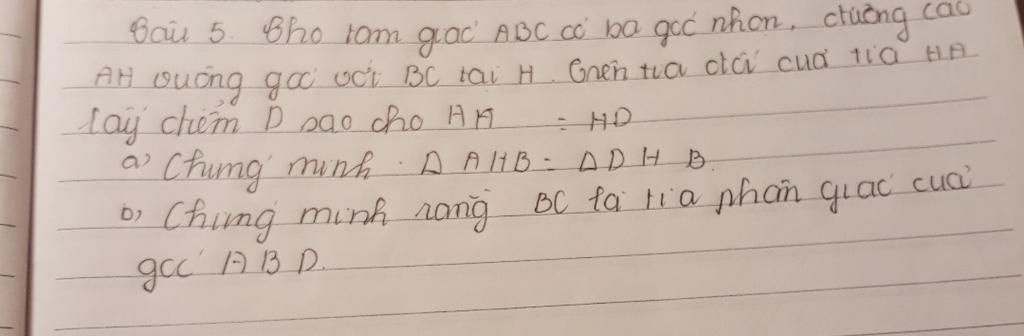 Bài 5. Cho tam giác ABC có ba góc nhọn, đường cao
AH vuông góc với BC tại H. Trên tia đối của tia HA
lấy điểm D sao cho AH = HD
a) Chứng minh: Δ AHB = Δ DHB
b) Chứng minh rằng BC là tia phân giác của
góc ABD.